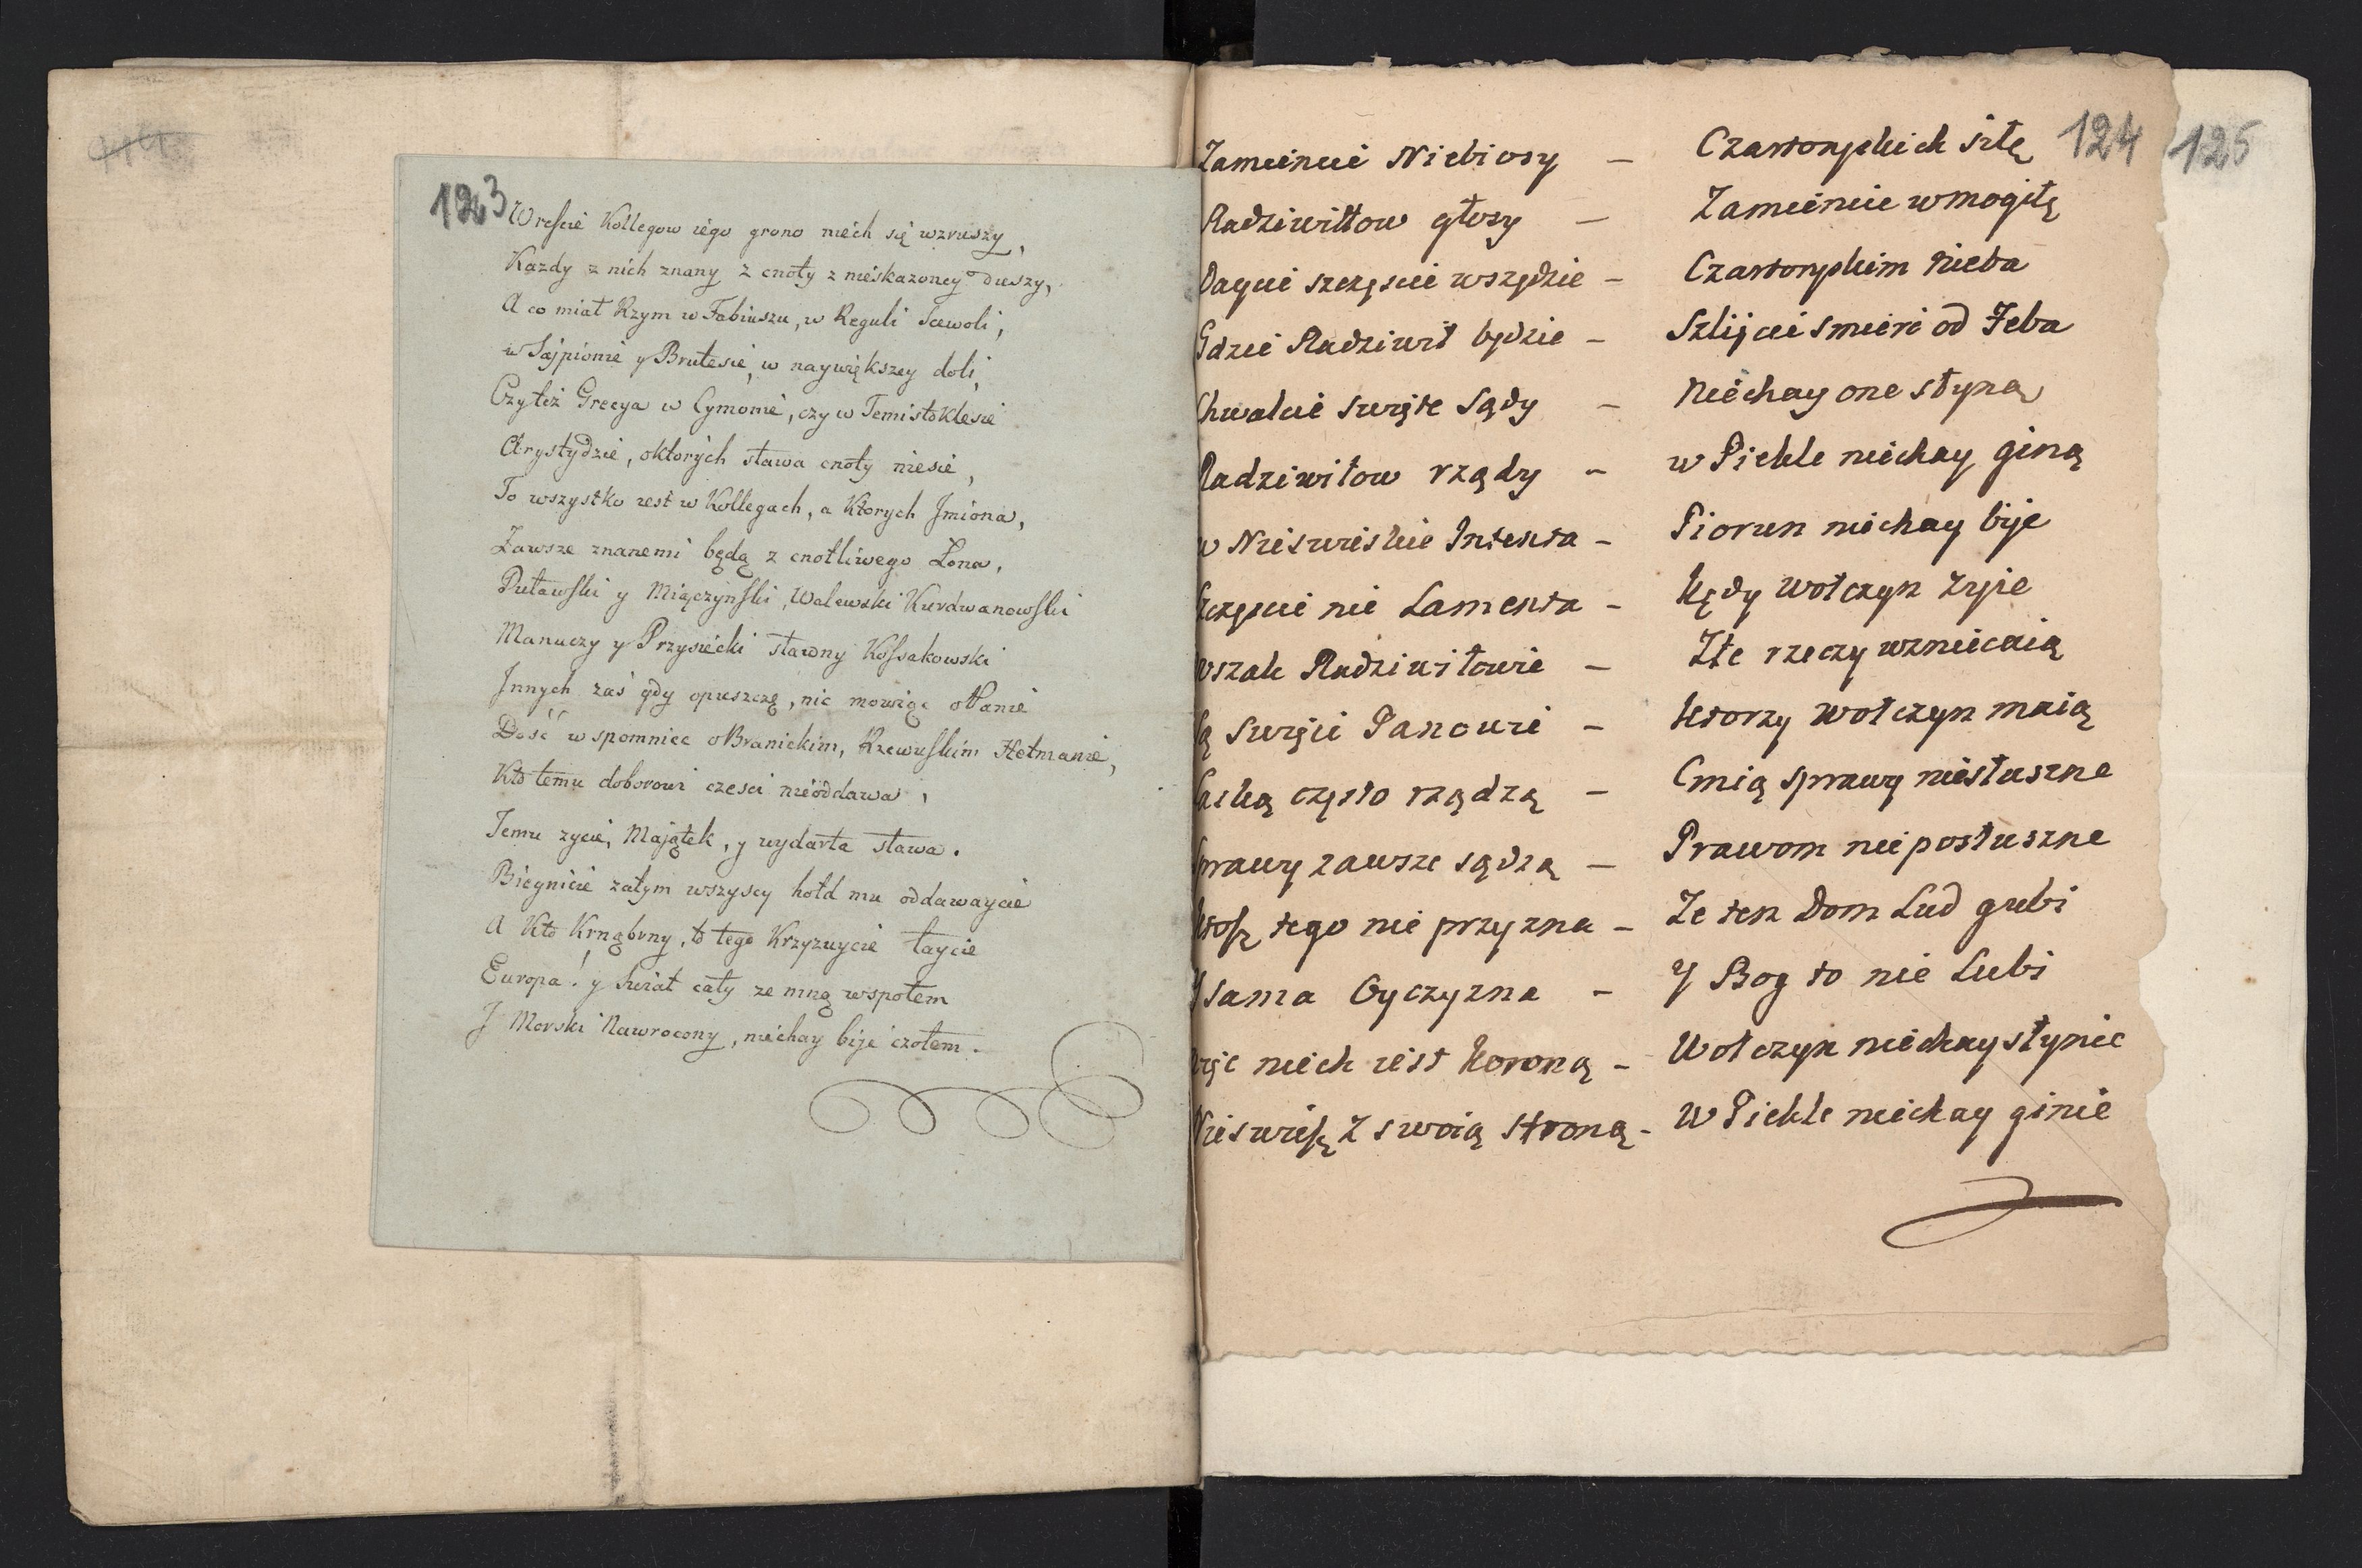 123
Wreście Kollegow iego grono niech się wzruszy,
Kazdy z nich znany z cnoty z nieskazoney Duszy,
A co miał Rzym w Fabiuszu, w Reguli Scewoli,
w Scypionie y Brutesie, w naywiększey doli,
Czyliż Grecya w Cymonie, czy w Temistoklesie
Arystydzie, o ktorych sława cnoty niesie,
To wszystko iest w Kollegach, a Ktorych Jmiona,
Zawsze znanemi będą z cnotliwego Łona,
Puławski y Miączyński, Walewski Kurdwanowski
Manuczy y Przysiecki sławny Kossakowski
Jnnych zaś gdy opuszczę, nic mowiąc o Panie
Dość wspomniec o Branickim, Rzewuskim Hetmanie,
Kto temu doborowi czesci nieoddawa,
Temu zycie, Majątek, y wydarta sława.
Biegnicie zatym wszyscy hołd mu oddawaycie
A Kto Krnąbrny, to tego Krzyzuycie łaycie
Europa! y Swiat cały ze mną wspołem
J Morski Nawrocony, niechay bije czołem.
124
125
Zamieńcie Niebiosy – Czartoryskich siłę
Radziwiłłow głosy – Zamieńcie w mogiłę
Daycie szczęscie wszędzie – Czartoryskim Nieba
Gdzie Radziwił będzie – Szlijcie smierć od Żeba
Chwalcie swięte Sądy – Niechay one słyną
Radziwiłow rządy – w Piekle niechay giną
w Nieswieskie Jntenta – Piorun niechay bije
Szczęscie nie Lamenta – Kędy Wołczyn żyie
Wszak Radziwiłowie – Złe rzeczy wzniecaią
Są Swięci Panowie – Ktorzy Wołczyn maią
Łaską często rządzą – Cmią sprawy niesłuszne
Sprawy zawsze sądzą – Prawom nie posłuszne
Ktosz tego nie przyzna – Ze ten Dom Lud gubi
Y sama Oyczyzna – Y Bog to nie Lubi
Więc niech iest Koroną – Wołczyn niechay słynie
Nieswiesz Z swoią stroną – W Piekle niechay ginie